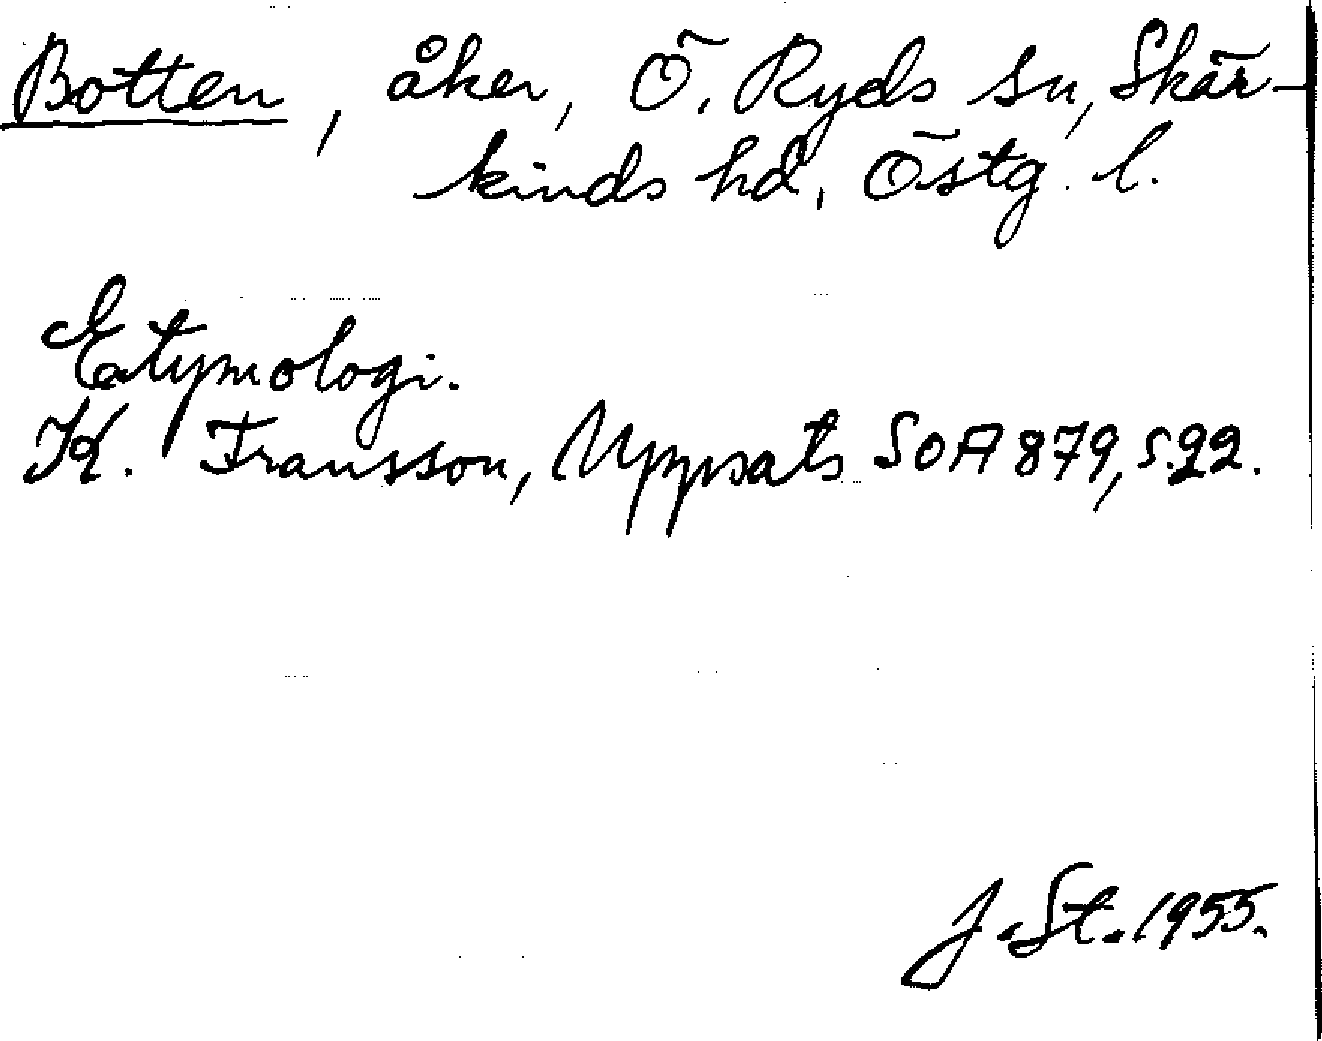 Botten, åker, Ö. Ryds sn, Skär-
kinds hd, Östg. l.
Etymologi.
K. Fransson, Uppsats SOA 879, s. 22.
J. St. 1955.